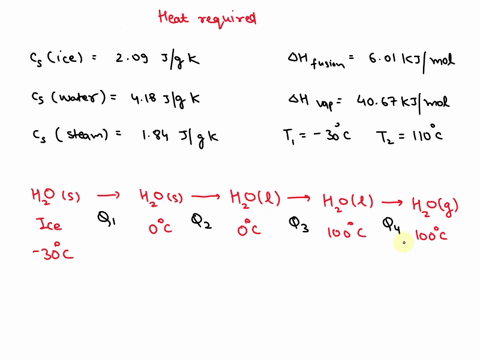 Heat required
Cs (ice) = 2.09 J/g K    ΔH fusion = 6.01 KJ/mol
Cs (water) = 4.18 J/g K    ΔH vap = 40.67 KJ/mol
Cs (steam) = 1.84 J/g K    T₁ = -30°C    T₂ = 110°C
H₂O (s) → H₂O (s) → H₂O (l) → H₂O (l) → H₂O (g)
Ice Q₁ 0°C Q₂ 0°C Q₃ 100°C Q₄ 100°C
-30°C